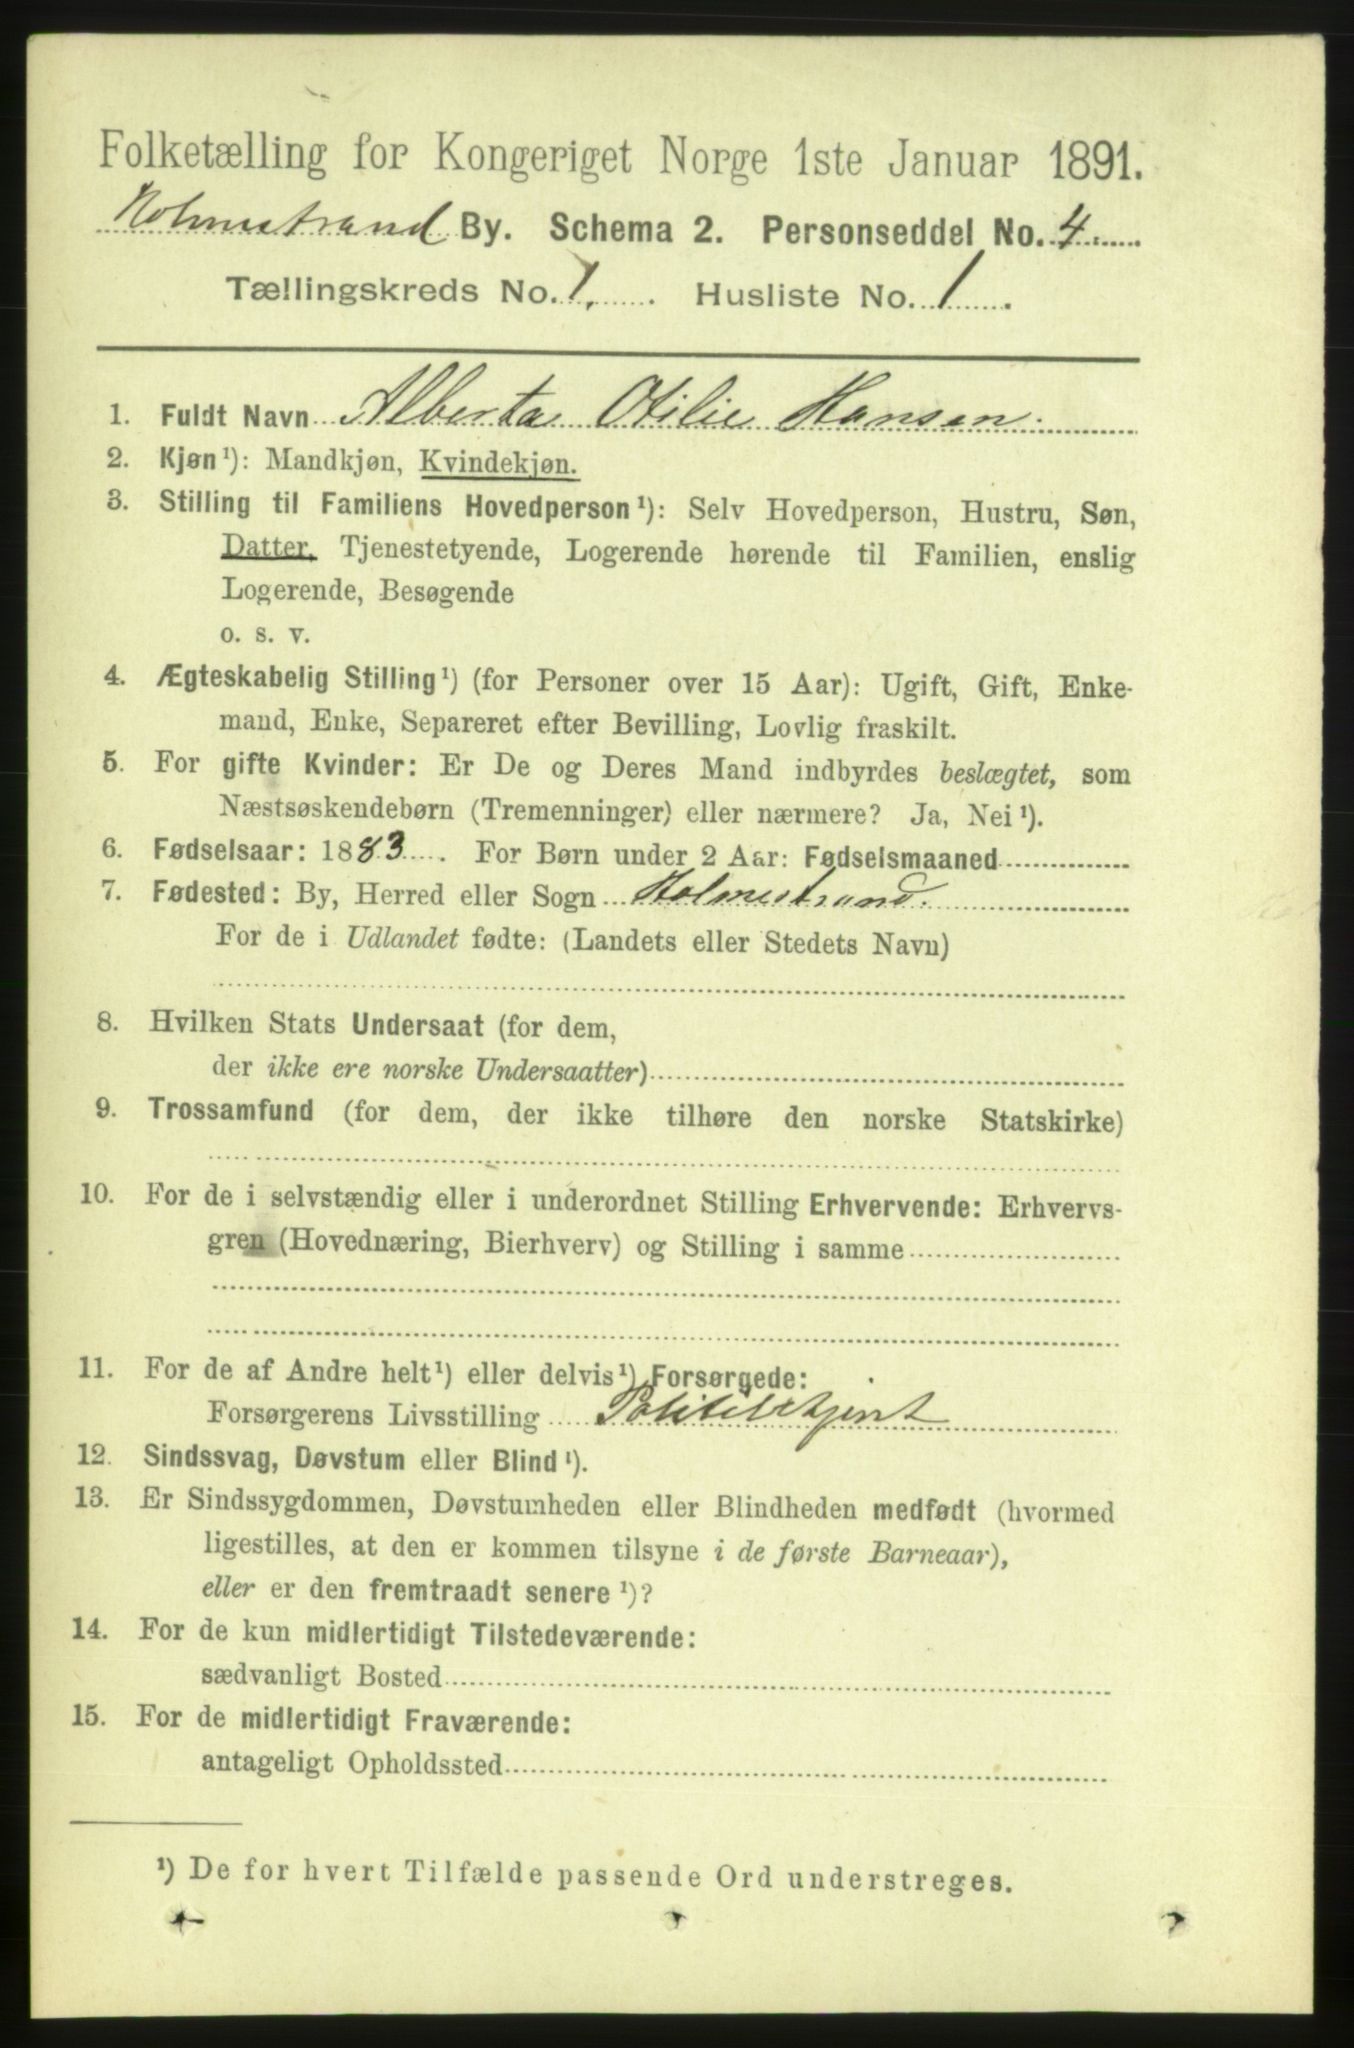 Folketælling for Kongeriget Norge 1ste Januar 1891.
Holmestrand By. Schema 2. Personseddel No. 4
Tællingskreds No. 1. Husliste No. 1.
1. Fuldt Navn Alberta Otilie Hansen.
2. Kjøn¹): Mandkjøn, Kvindekjøn.
3. Stilling til Familiens Hovedperson¹): Selv Hovedperson, Hustru, Søn,
Datter, Tjenestetyende, Logerende hørende til Familien, enslig
Logerende, Besøgende
o. s. v.
4. Ægteskabelig Stilling¹) (for Personer over 15 Aar): Ugift, Gift, Enke-
mand, Enke, Separeret efter Bevilling, Lovlig fraskilt.
5. For gifte Kvinder: Er De og Deres Mand indbyrdes beslægtet, som
Næstsøskendebørn (Tremenninger) eller nærmere? Ja, Nei¹).
6. Fødselsaar: 1883. For Børn under 2 Aar: Fødselsmaaned
7. Fødested: By, Herred eller Sogn Holmestrand.
For de i Udlandet fødte: (Landets eller Stedets Navn)
8. Hvilken Stats Undersaat (for dem,
der ikke ere norske Undersaatter)
9. Trossamfund (for dem, der ikke tilhøre den norske Statskirke)
10. For de i selvstændig eller i underordnet Stilling Erhvervende: Erhvervs-
gren (Hovednæring, Bierhverv) og Stilling i samme
11. For de af Andre helt¹) eller delvis¹) Forsørgede:
Forsørgerens Livsstilling
12. Sindssvag, Døvstum eller Blind¹).
13. Er Sindssygdommen, Døvstumheden eller Blindheden medfødt (hvormed
ligestilles, at den er kommen tilsyne i de første Barneaar),
eller er den fremtraadt senere¹)?
14. For de kun midlertidigt Tilstedeværende:
sædvanligt Bosted
15. For de midlertidigt Fraværende:
antageligt Opholdssted
¹) De for hvert Tilfælde passende Ord understreges.